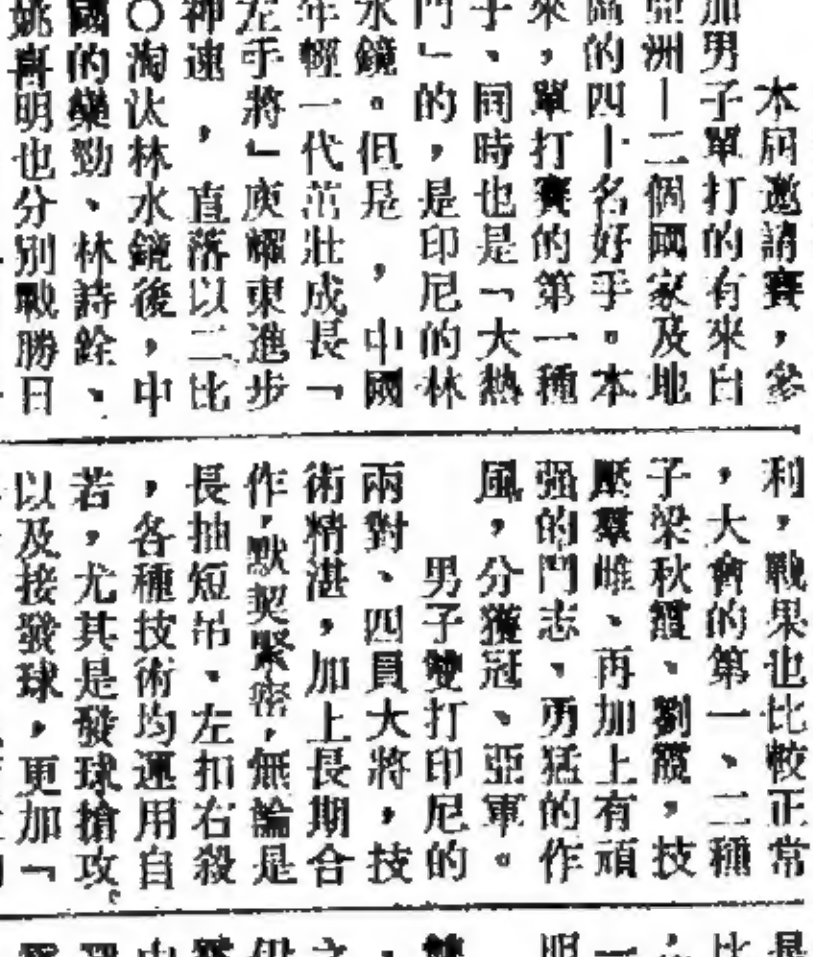 本屆邀請賽，參
加男子單打的有來自
亞洲十二個國家及地
區的四十名好手。本
來，單打賽的第一種
子、同時也是「大熱
門」的，是印尼的林
水鏡。但是，中國
年輕一代茁壯成長「
左手將」庾耀東進步
神速，直落以二比
〇淘汰林水鏡後，中
國的欒勁、林詩銓、
姚喜明也分別戰勝日
利，戰果也比較正常
，大會的第一、二種
子梁秋霞、劉霞，技
壓羣雌、再加上有頑
强的鬥志、勇猛的作
風，分獲冠、亞軍。
男子雙打印尼的
兩對、四員大將，技
術精湛，加上長期合
作，默契緊密，無論是
長抽短吊、左扣右殺
，各種技術均運用自
若，尤其是發球搶攻
以及接發球，更加「